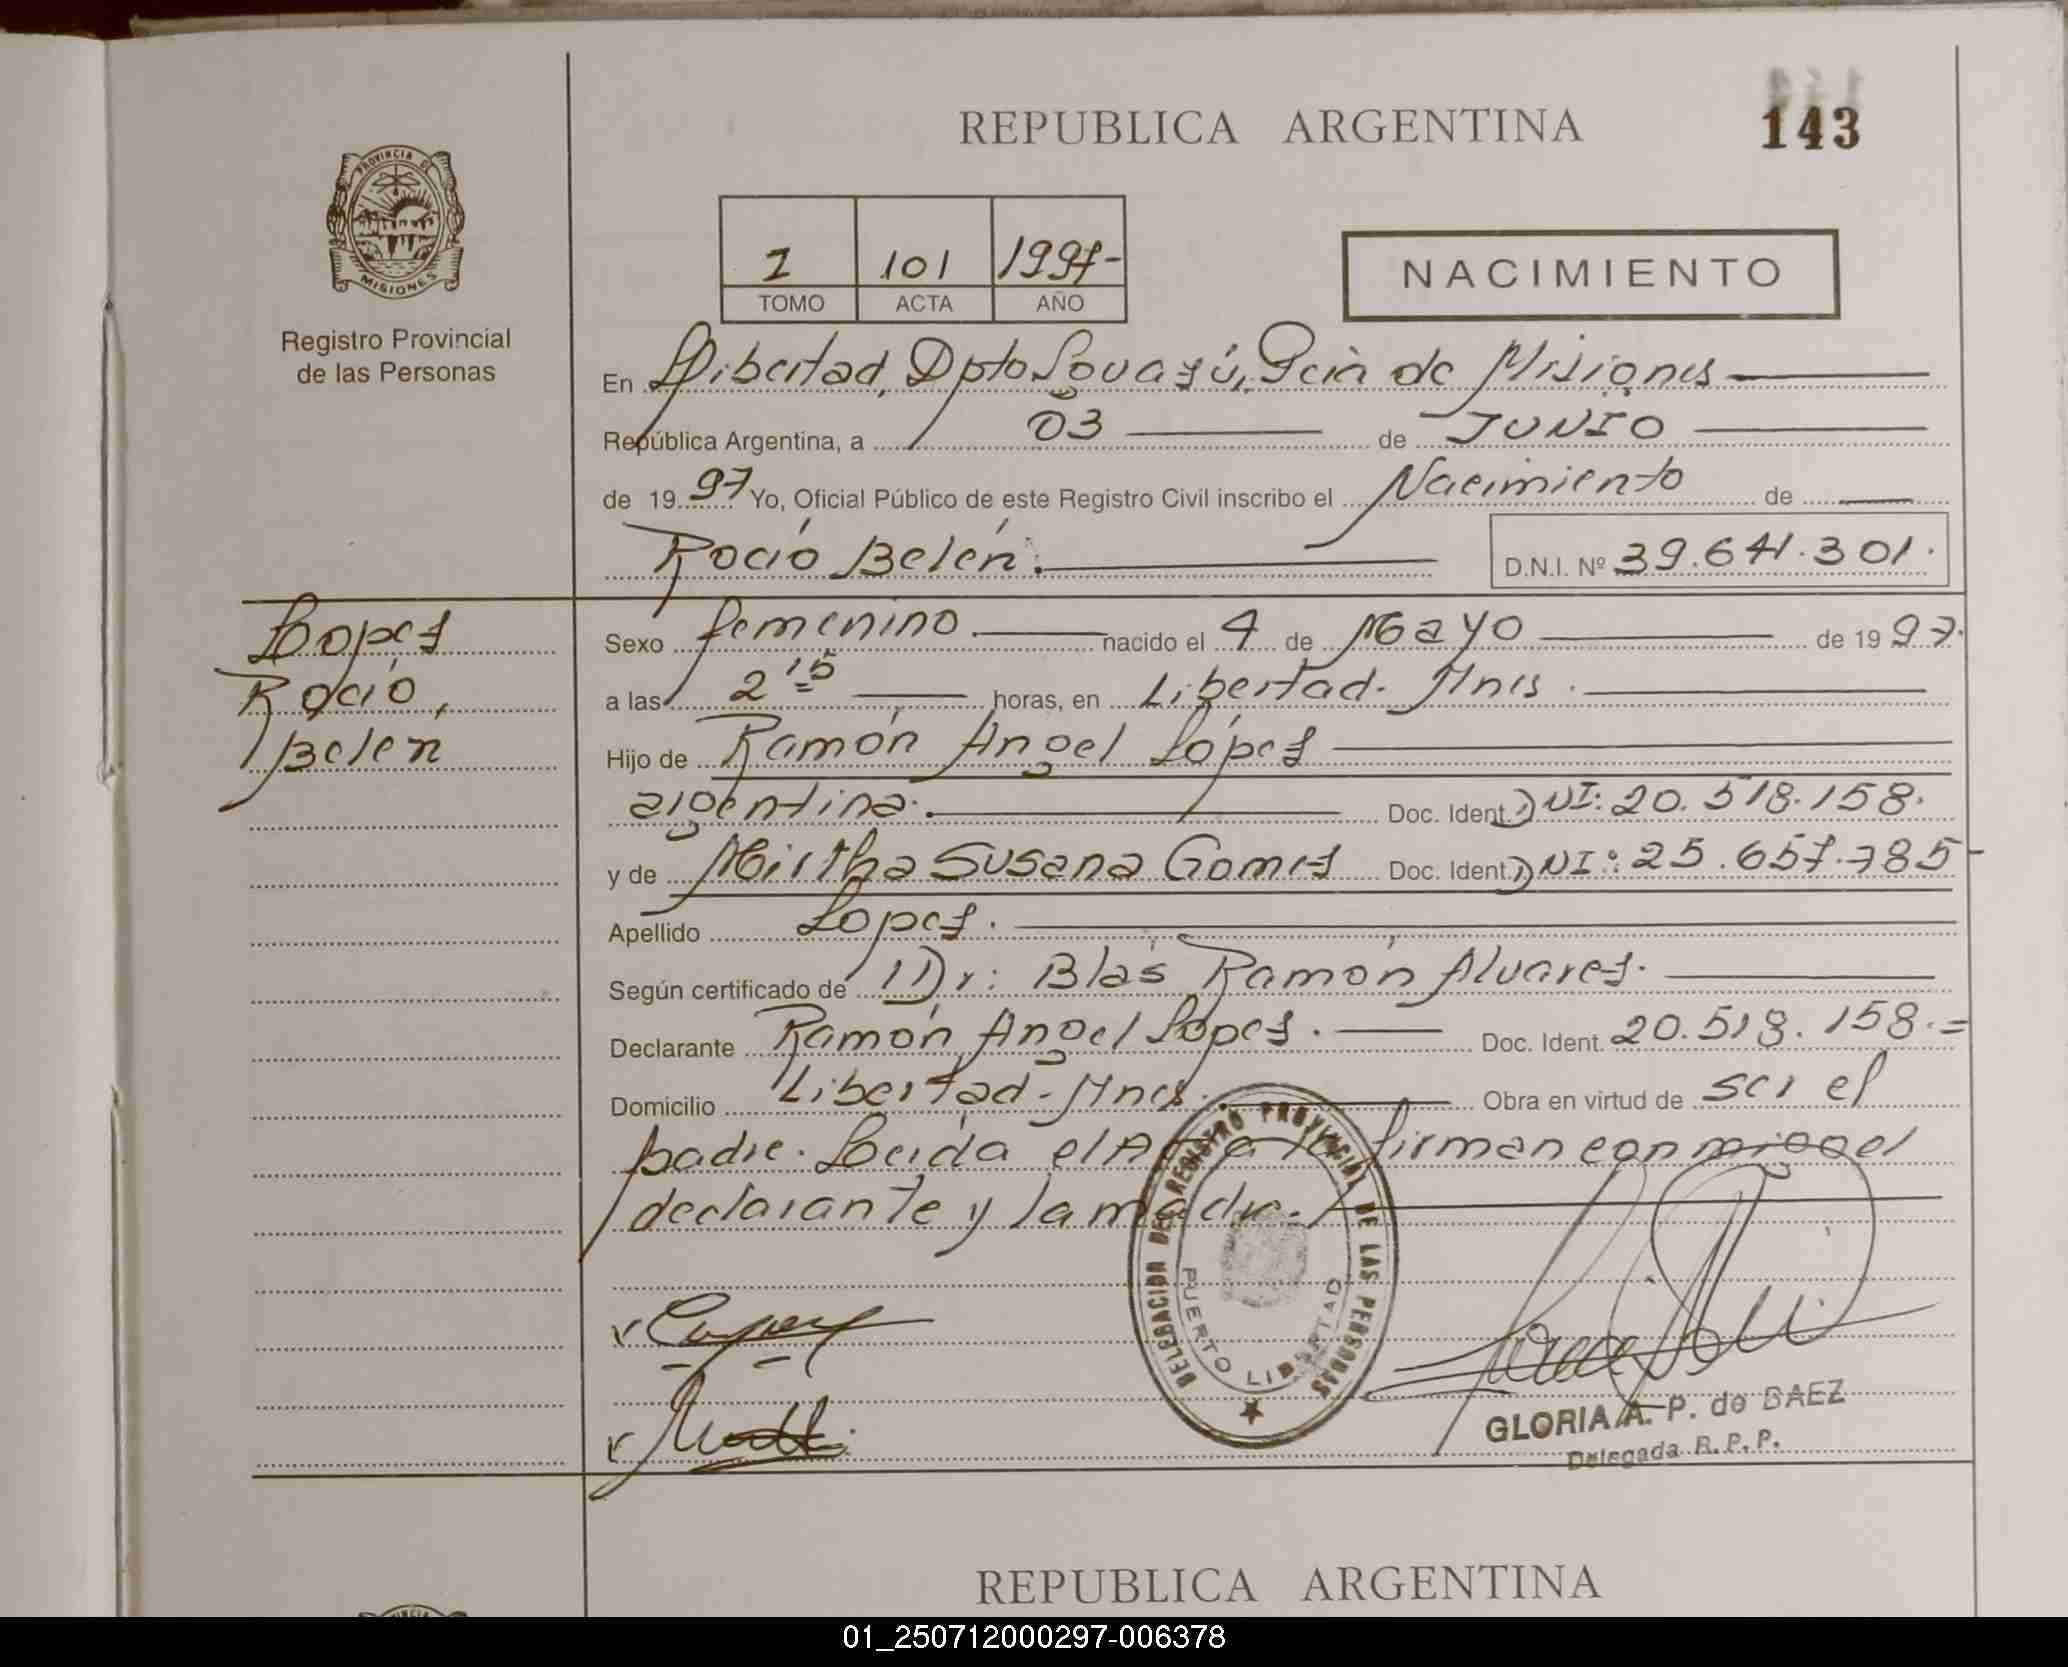 REPUBLICA ARGENTINA
143
PROVINCIA DE
MISIONES
Registro Provincial
de las Personas
I 101 1997-
TOMO ACTA AÑO
NACIMIENTO
En Libertad, Dpto Iguazú, Pcia de Misiones
República Argentina, a 03 de JUNIO
de 1997 Yo, Oficial Público de este Registro Civil inscribo el Nacimiento de
Rocío Belén. D.N.I. Nº 39.641.301.
Lopez
Rocío,
Belen
Sexo femenino. nacido el 4 de Mayo de 1997.
a las 2 15 horas, en Libertad. Mnes.
Hijo de Ramón Angel López
argentina. Doc. Ident. DNI: 20.518.158.
y de Mirtha Susana Gomez Doc. Ident. DNI: 25.657.785-
Apellido Lopez.
Según certificado de Dr: Blás Ramón Alvarez.
Declarante Ramón Angel Lopez. Doc. Ident. 20.518.158.=
Domicilio Libertad-Mnes. Obra en virtud de ser el
padre. Leida el Acta la firman con migo el
declarante y la madre.
DELEGACION DEL REGISTRO PROVINCIAL DE LAS PERSONAS
PUERTO LIBERTAD
GLORIA A. P. de BAEZ
Delegada R. P. P.
REPUBLICA ARGENTINA
01_250712000297-006378